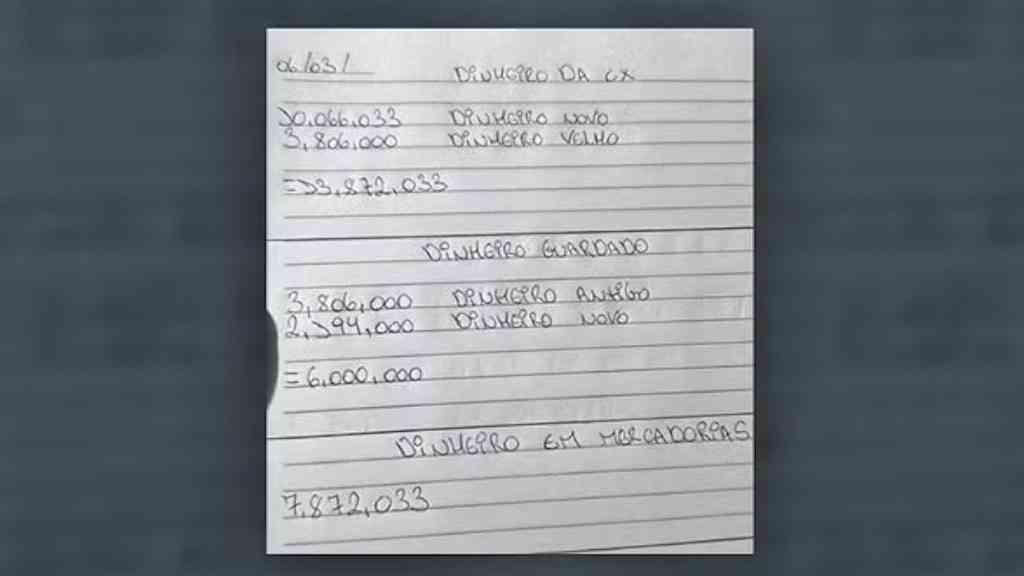 06/03/
DINHEIRO DA CX
10,066,033 DINHEIRO NOVO
3,806,000 DINHEIRO VELHO
=13,872,033
DINHEIRO GUARDADO
3,806,000 DINHEIRO ANTIGO
2,194,000 DINHEIRO NOVO
=6,000,000
DINHEIRO EM MERCADORIAS
7,872,033